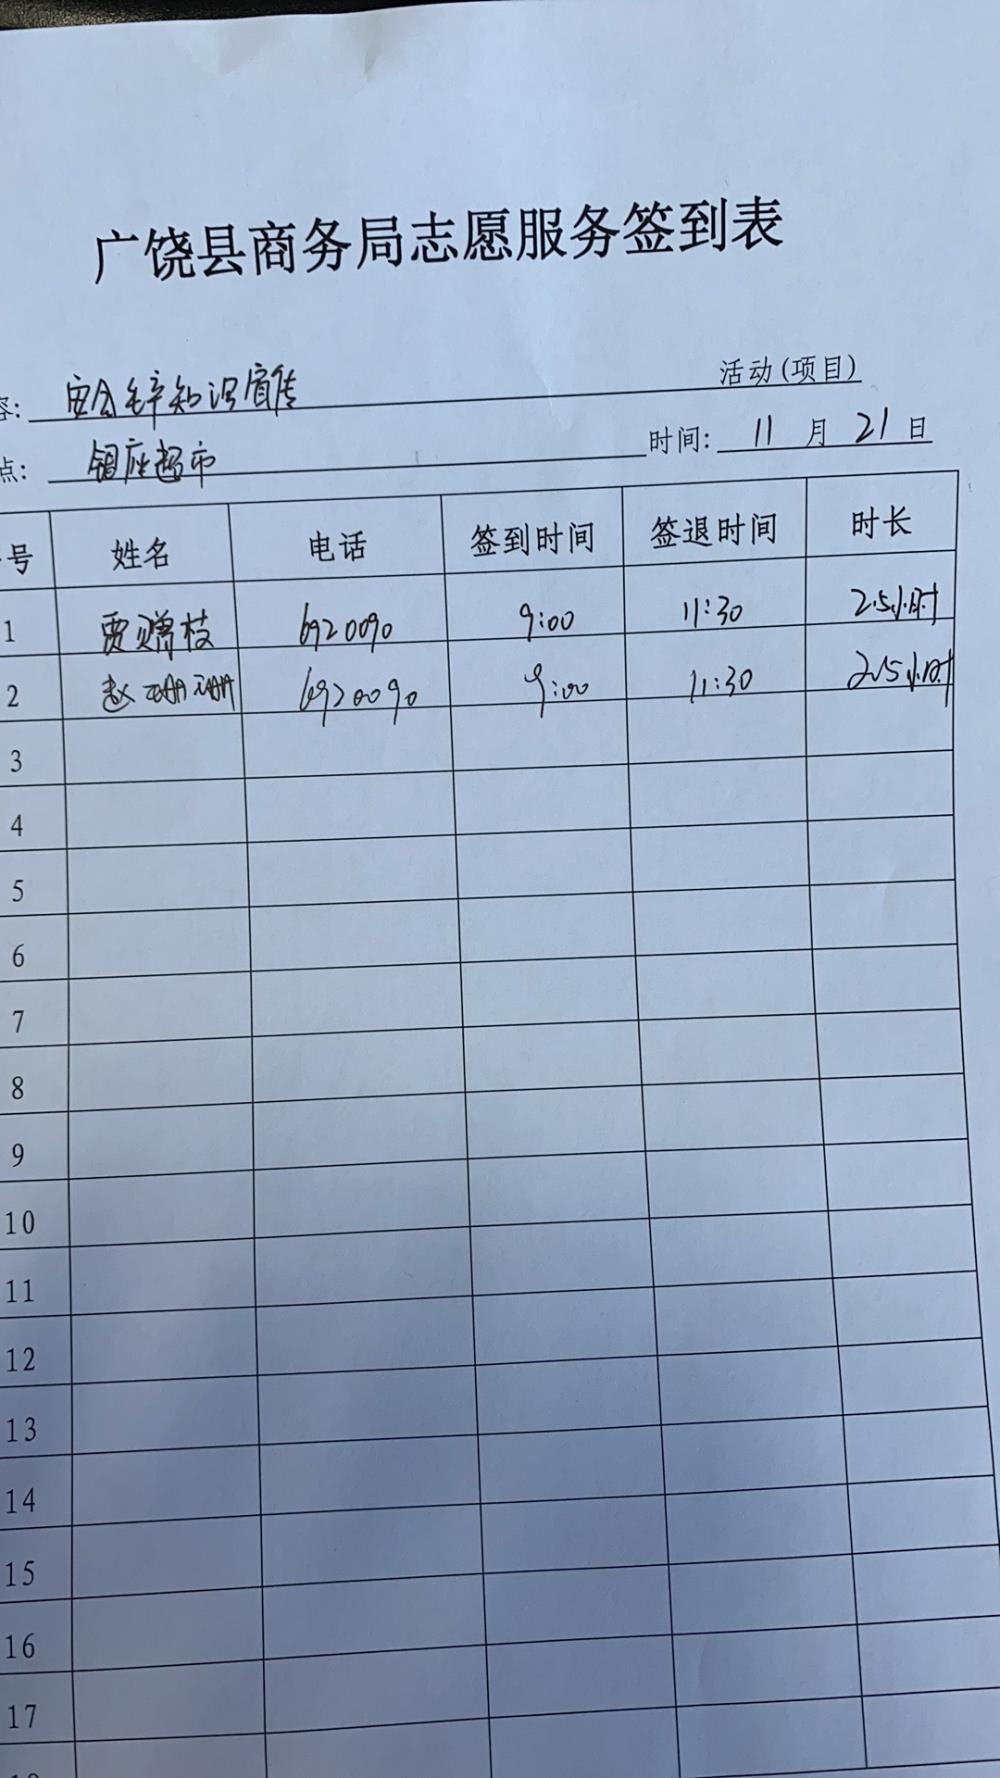 广饶县商务局志愿服务签到表
容: 安全生产知识宣传 活动(项目)
点: 银座超市 时间: 11 月 21 日
号 姓名 电话 签到时间 签退时间 时长
1 贾赠枝 6920090 9:00 11:30 2.5小时
2 赵珊珊 6920090 9:00 11:30 2.5小时
3
4
5
6
7
8
9
10
11
12
13
14
15
16
17